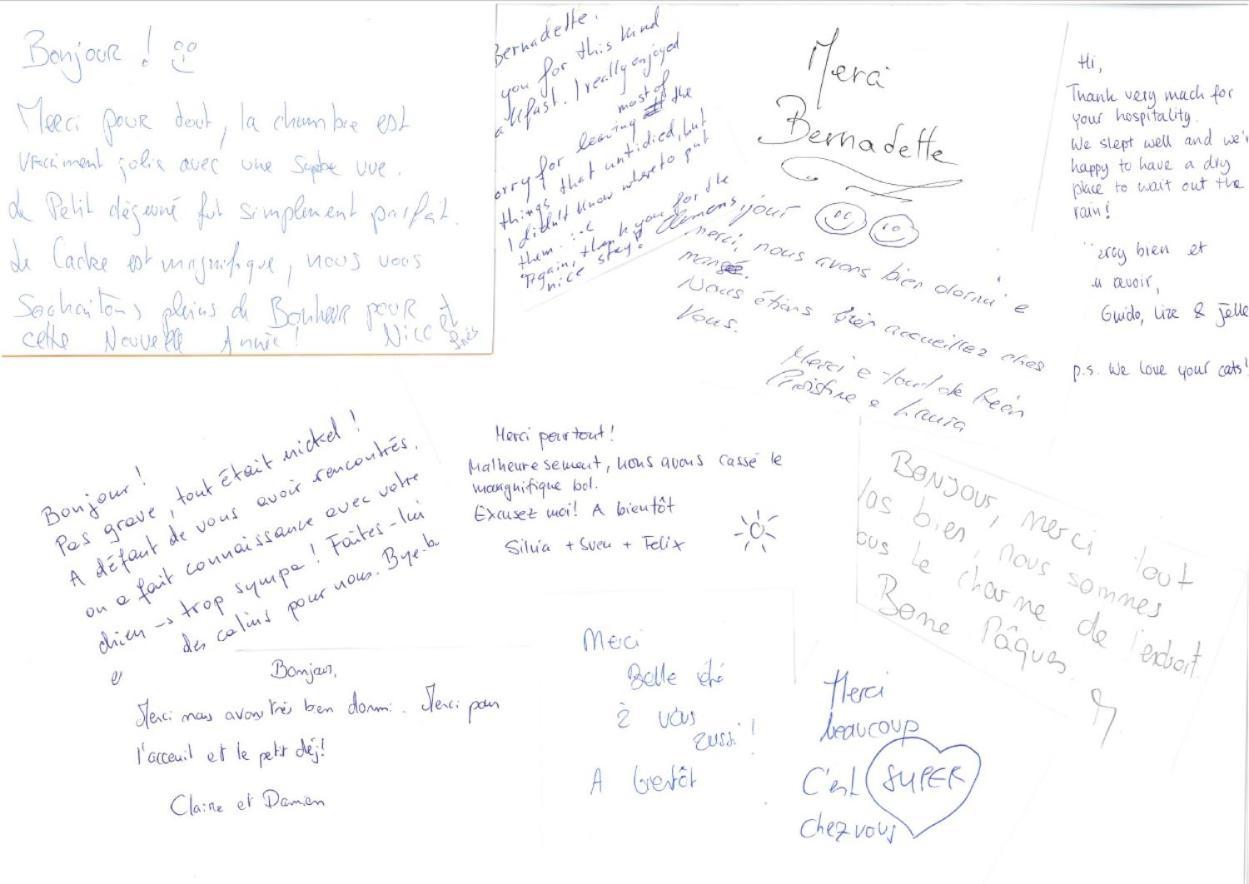 Bonjour !
Merci pour tout, la chambre est
vraiment jolie avec une superbe vue.
Le Petit déjeuné fut simplement parfait.
Le Cadre est magnifique, nous vous
Souhaitons pleins de Bonheur pour
cette Nouvelle Année !
et
Bernadette.
you for this kind
akfast. I really enjoyed
most of
orry for leaving the
things that untidied, but
I didn't know where to put
them
Again, thank you for the
nice stay! Clemens
Merci
Bernadette
jour
merci, nous avons bien dormi e
mangé.
Nous étions bien accueillez ches
Vous.
Merci e
e Laura
Hi,
Thank very mach for
your hospitality.
We slept well and we'r
happy to have a dry
place to wait out the
rain!
ercy bien et
u avoir,
Guido, Lize & Jelle
p.s. We love your cats!
Bonjour !
Pas grave, tout était nickel !
A défaut de vous avoir rencontrés,
on a fait connaissance avec votre
chien → trop sympa ! Faites-lui
des calins pour nous. Bye
Merci pour tout!
Malheuresement, nous avons cassé le
mangnifique bol.
Excusez moi! A bientôt
Silvia + Sven + Felix
Bonjour, merci tout
las bien, nous sommes
ous le charme de l'endroit.
Bonne Pâques.
Bonjour,
Merci nous avons très bien dormi. Merci pour
l'acceuil et le petit déj!
Claire et Damien
Merci
Belle été
à vous
aussi !
A bientôt
Merci
beaucoup
C'est SUPER
chez vous